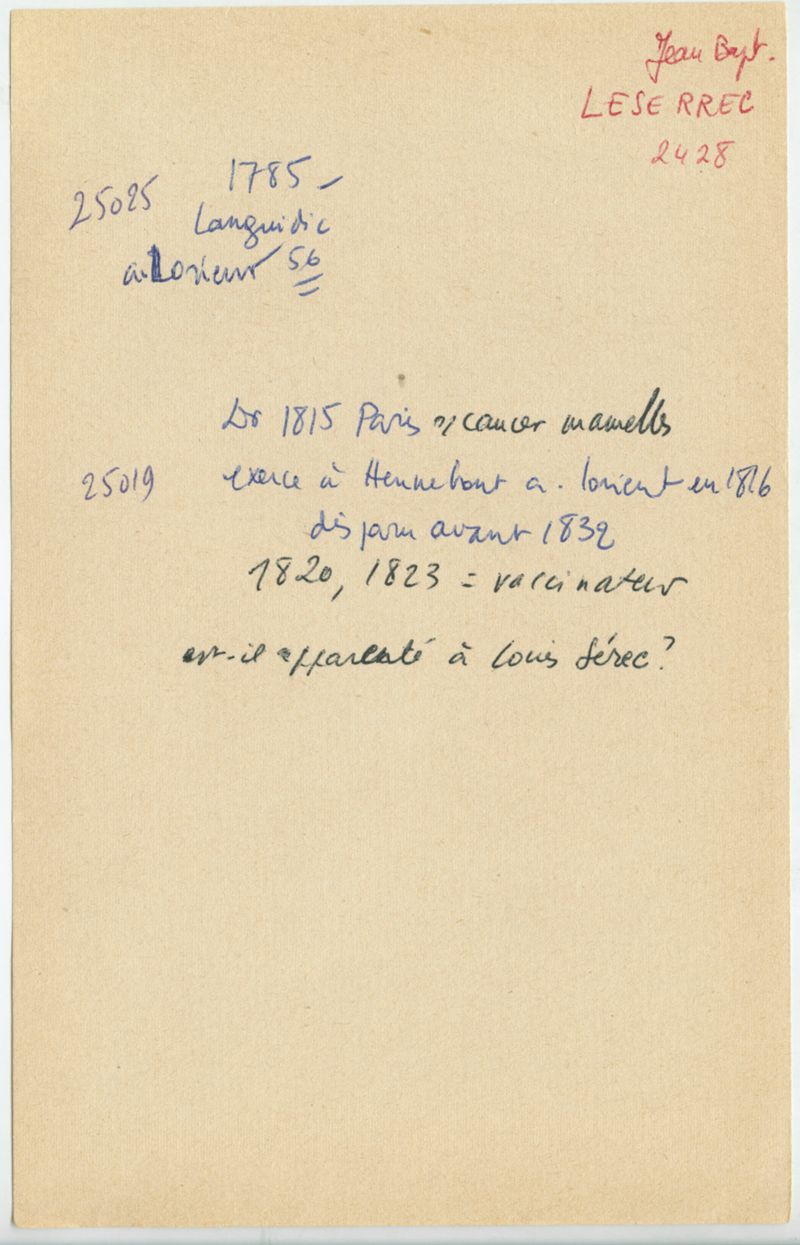 Jean Bapt.
LESERREC
2428
25025 1785 –
Languidic
a. Lorient 56
Dr 1815 Paris s/cancer mamelles
25019 exerce à Hennebont a. lorient en 1816
disparu avant 1832
1820, 1823 = vaccinateur
est-il apparenté à Louis Sérec?